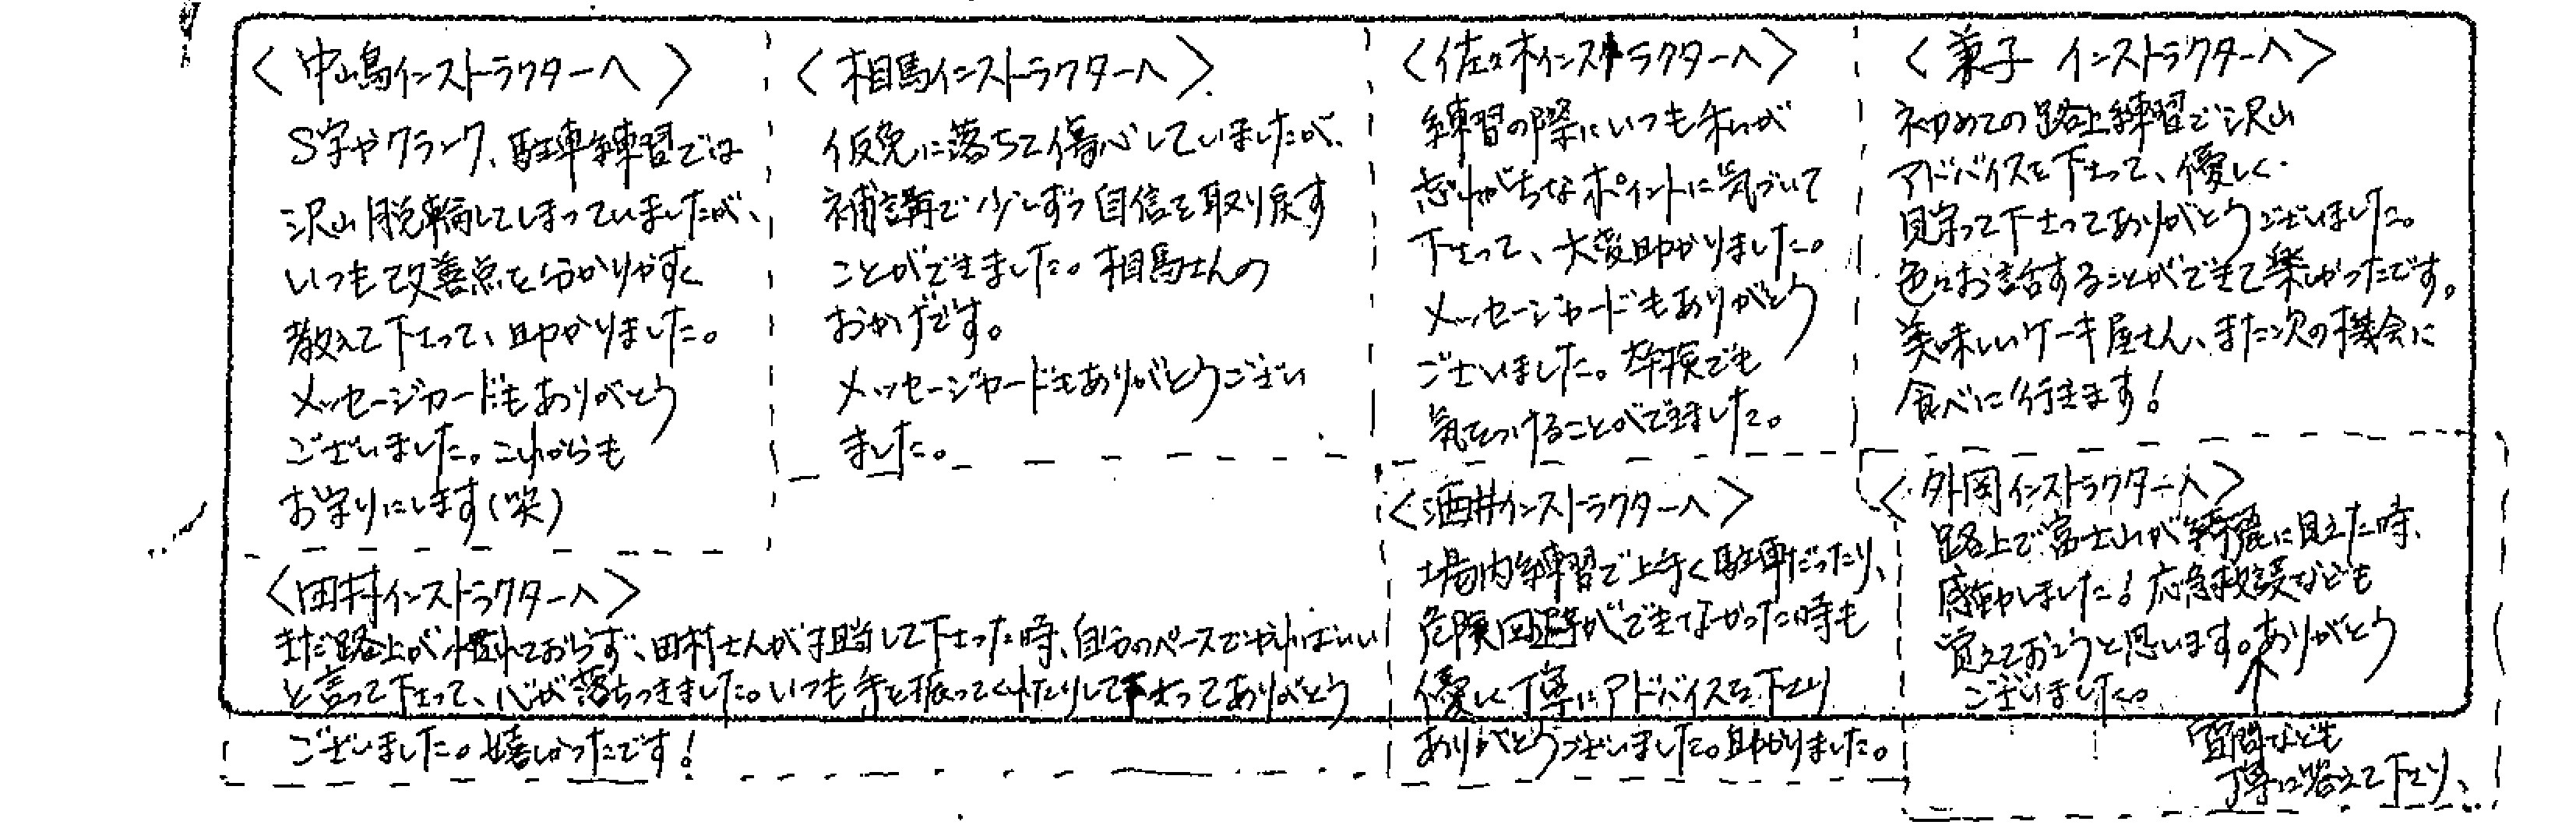 〈中嶋インストラクターへ〉
S字やクランク、駐車練習では
沢山脱輪してしまっていましたが、
いつも改善点を分かりやすく
教えて下さって、助かりました。
メッセージカードもありがとう
ございました。これからも
お守りにします(笑)
〈相馬インストラクターへ〉
仮免に落ちて傷心していましたが、
補講で少しずつ自信を取り戻す
ことができました。相馬さんの
おかげです。
メッセージカードもありがとうござい
ました。
〈佐々木インストラクターへ〉
練習の際にいつも私が
忘れがちなポイントに気づいて
下さって、大変助かりました。
メッセージカードもありがとう
ございました。卒検でも
気をつけることができました。
〈兼子 インストラクターへ〉
初めての路上練習で沢山
アドバイスを下さって、優しく
見守って下さってありがとうございました。
色々お話することができて楽しかったです。
美味しいケーキ屋さん、また次の機会に
食べに行きます!
〈田村インストラクターへ〉
まだ路上が慣れておらず、田村さんが担当して下さった時、自分のペースでやればいい
と言って下さって、心が落ちつきました。いつも手を振ってくれたりして下さってありがとう
ございました。嬉しかったです!
〈酒井インストラクターへ〉
場内練習で上手く駐車だったり、
危険回避ができなかった時も
優しく丁寧にアドバイスを下さり
ありがとうございました。助かりました。
〈外岡インストラクターへ〉
路上で富士山が綺麗に見えた時、
感動しました!応急救護なども
覚えておこうと思います。ありがとう
ございました。
質問なども
丁寧に答えて下さり、